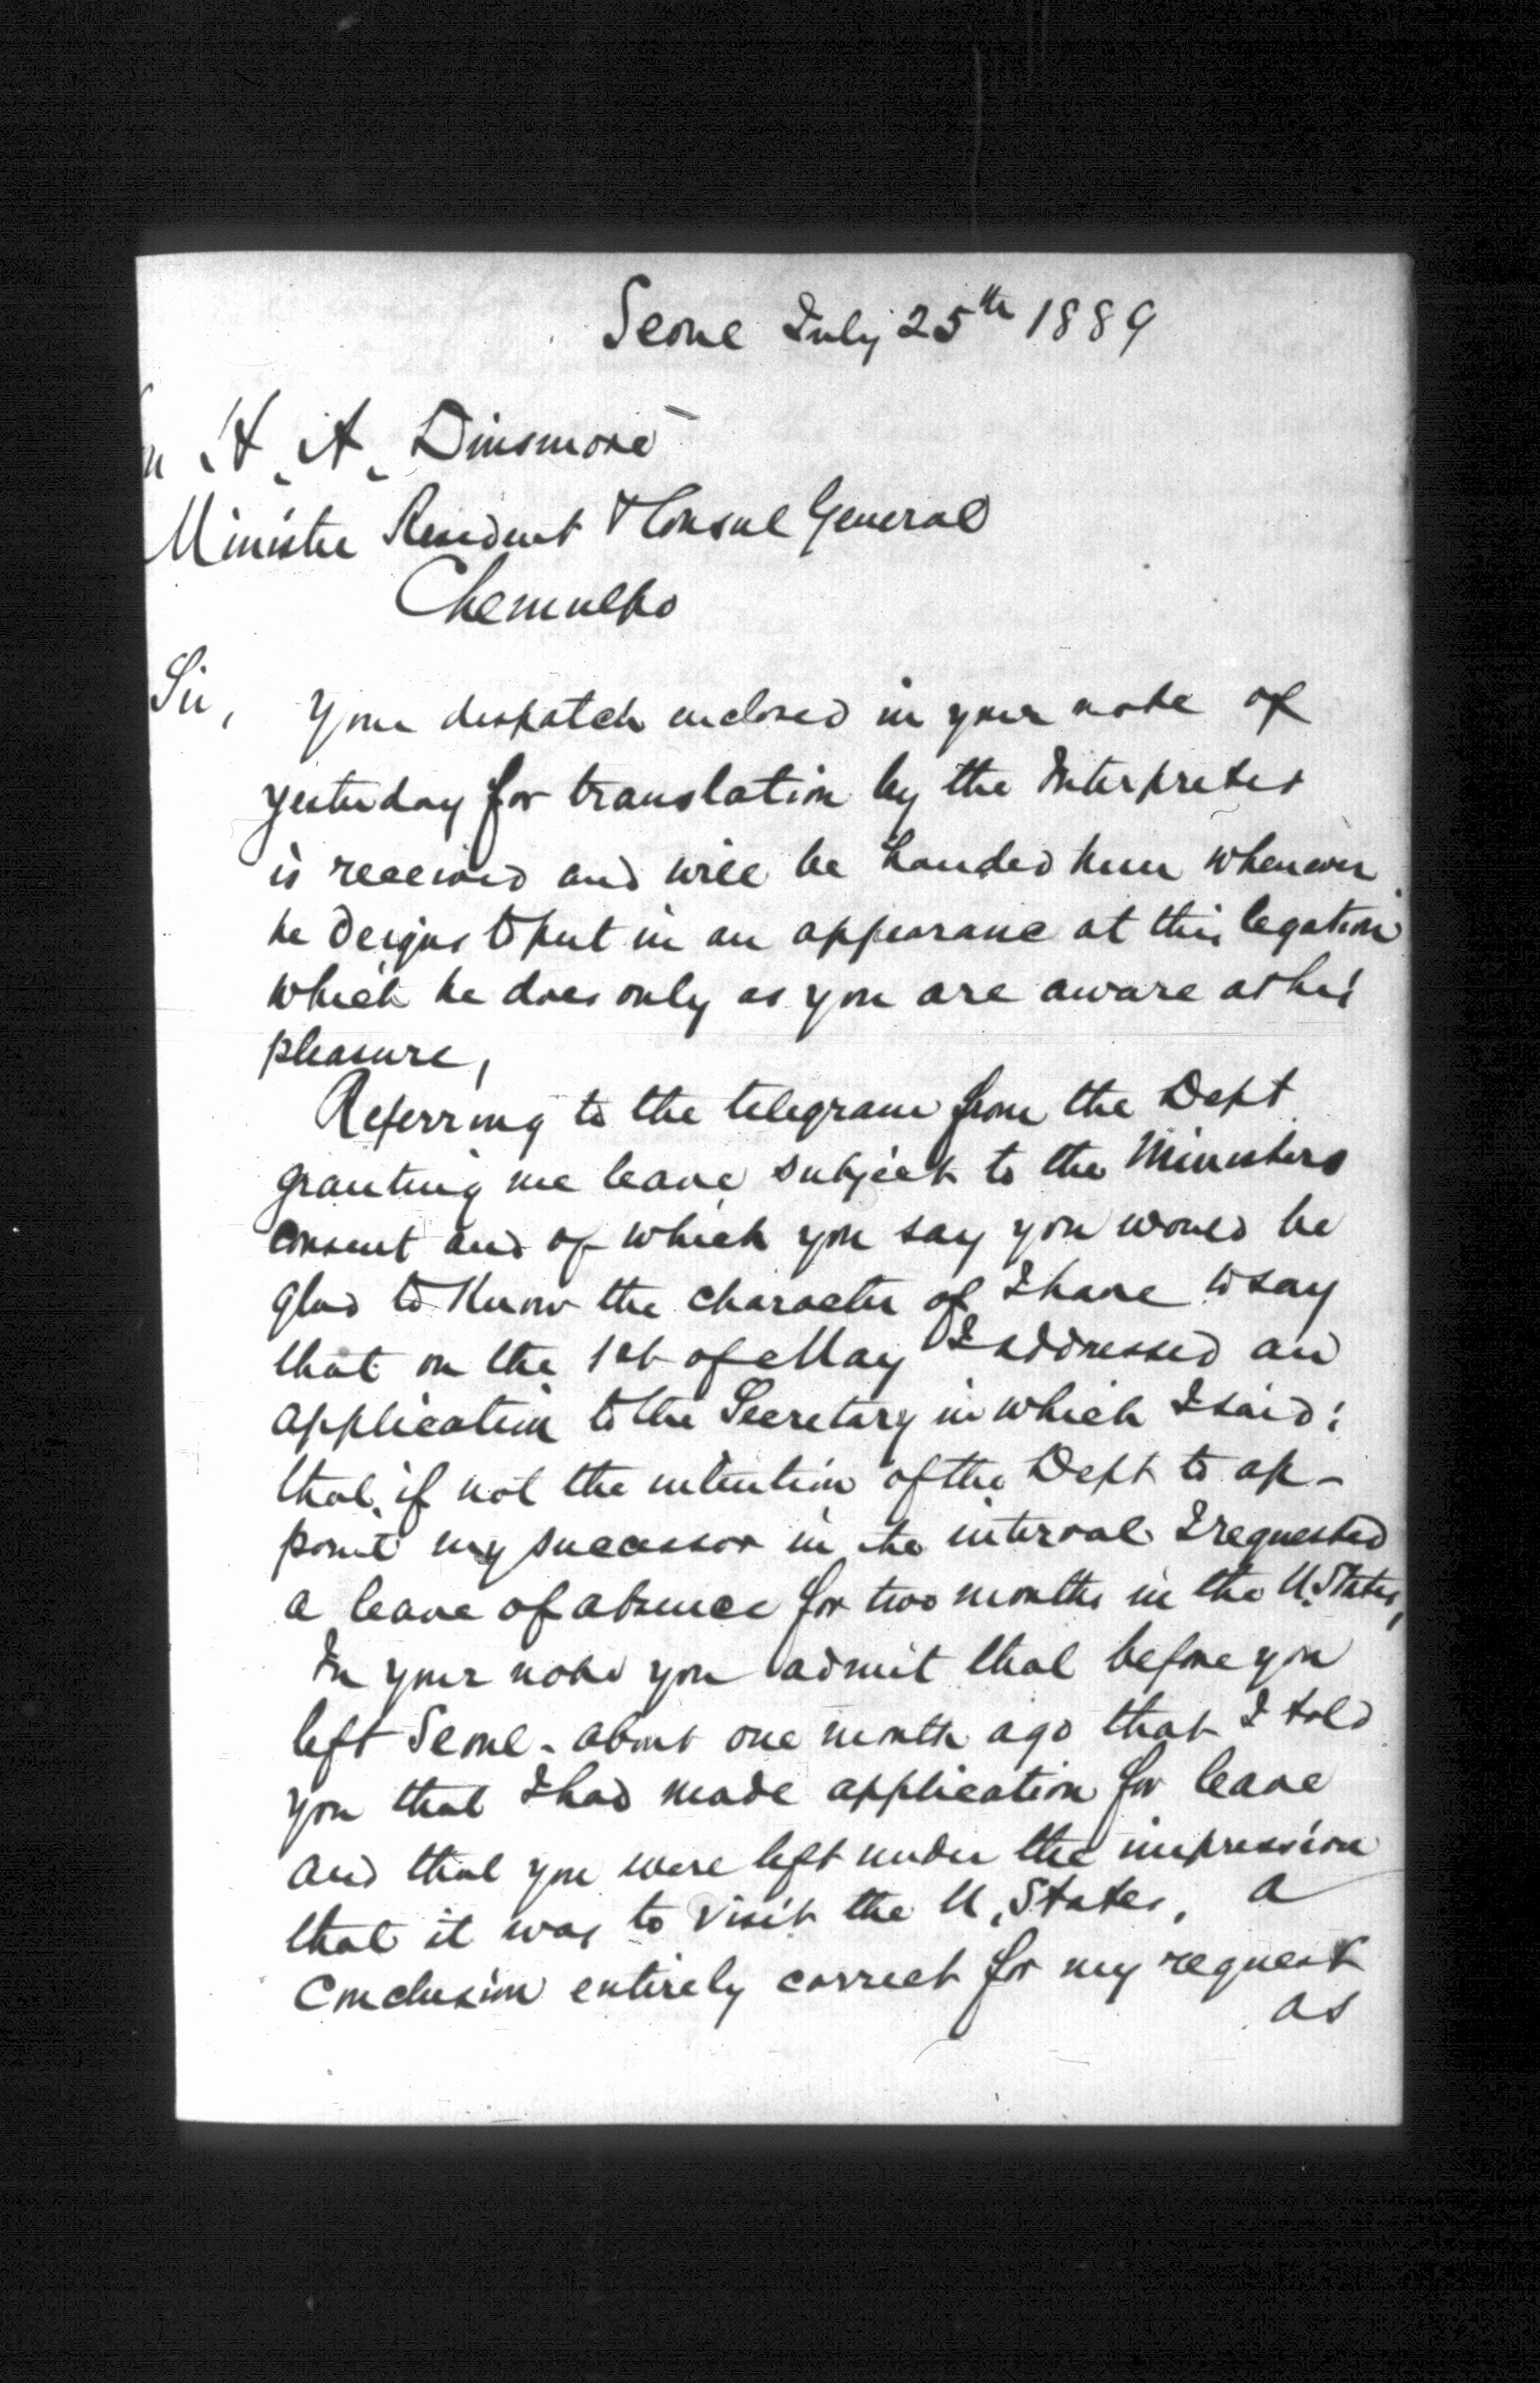 Seoul July 25th 1889
H. A. Dinsmore
Minister Resident & Consul General
Chemulpo
Sir,
Your despatch enclosed in your note of
yesterday for translation by the Interpreter
is received and will be handed him whenever
he deigns to put in an appearance at this legation
which he does only as you are aware at his
pleasure,
Referring to the telegram from the Dept
granting me leave subject to the Ministers
consent and of which you say you would be
glad to know the character of I have to say
that on the 1st of May I addressed an
application to the Secretary in which I said:
that, if not the intention of the Dept to ap-
point my successor in the interval I requested
a leave of absence for two months in the U. States,
In your note you admit that before you
left Seoul - about one month ago that I told
you that I had made application for leave
and that you were left under the impression
that it was to visit the U. States, a
conclusion entirely correct for my request
as